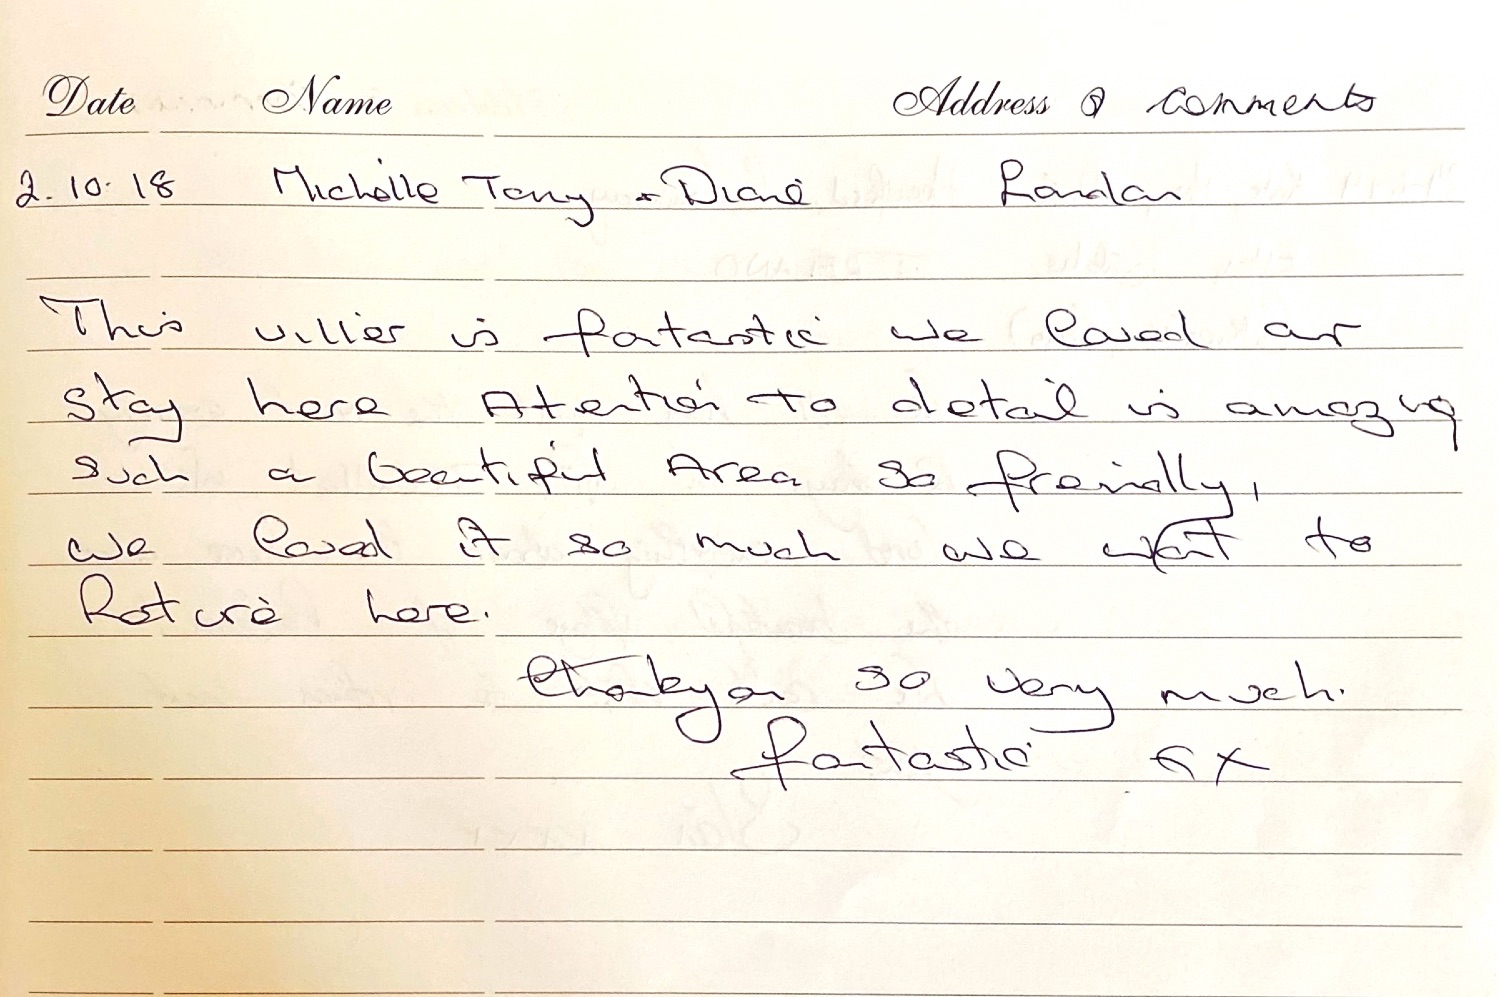 Date Name Address & comments
2.10.18 Michelle Tony + Diane London
This villier is fantastic we loved our
stay here Atention to detail is amazing
such a beautiful Area so freindly,
we loved it so much we want to
Roture here.
Thankyou so very much.
fantastic x